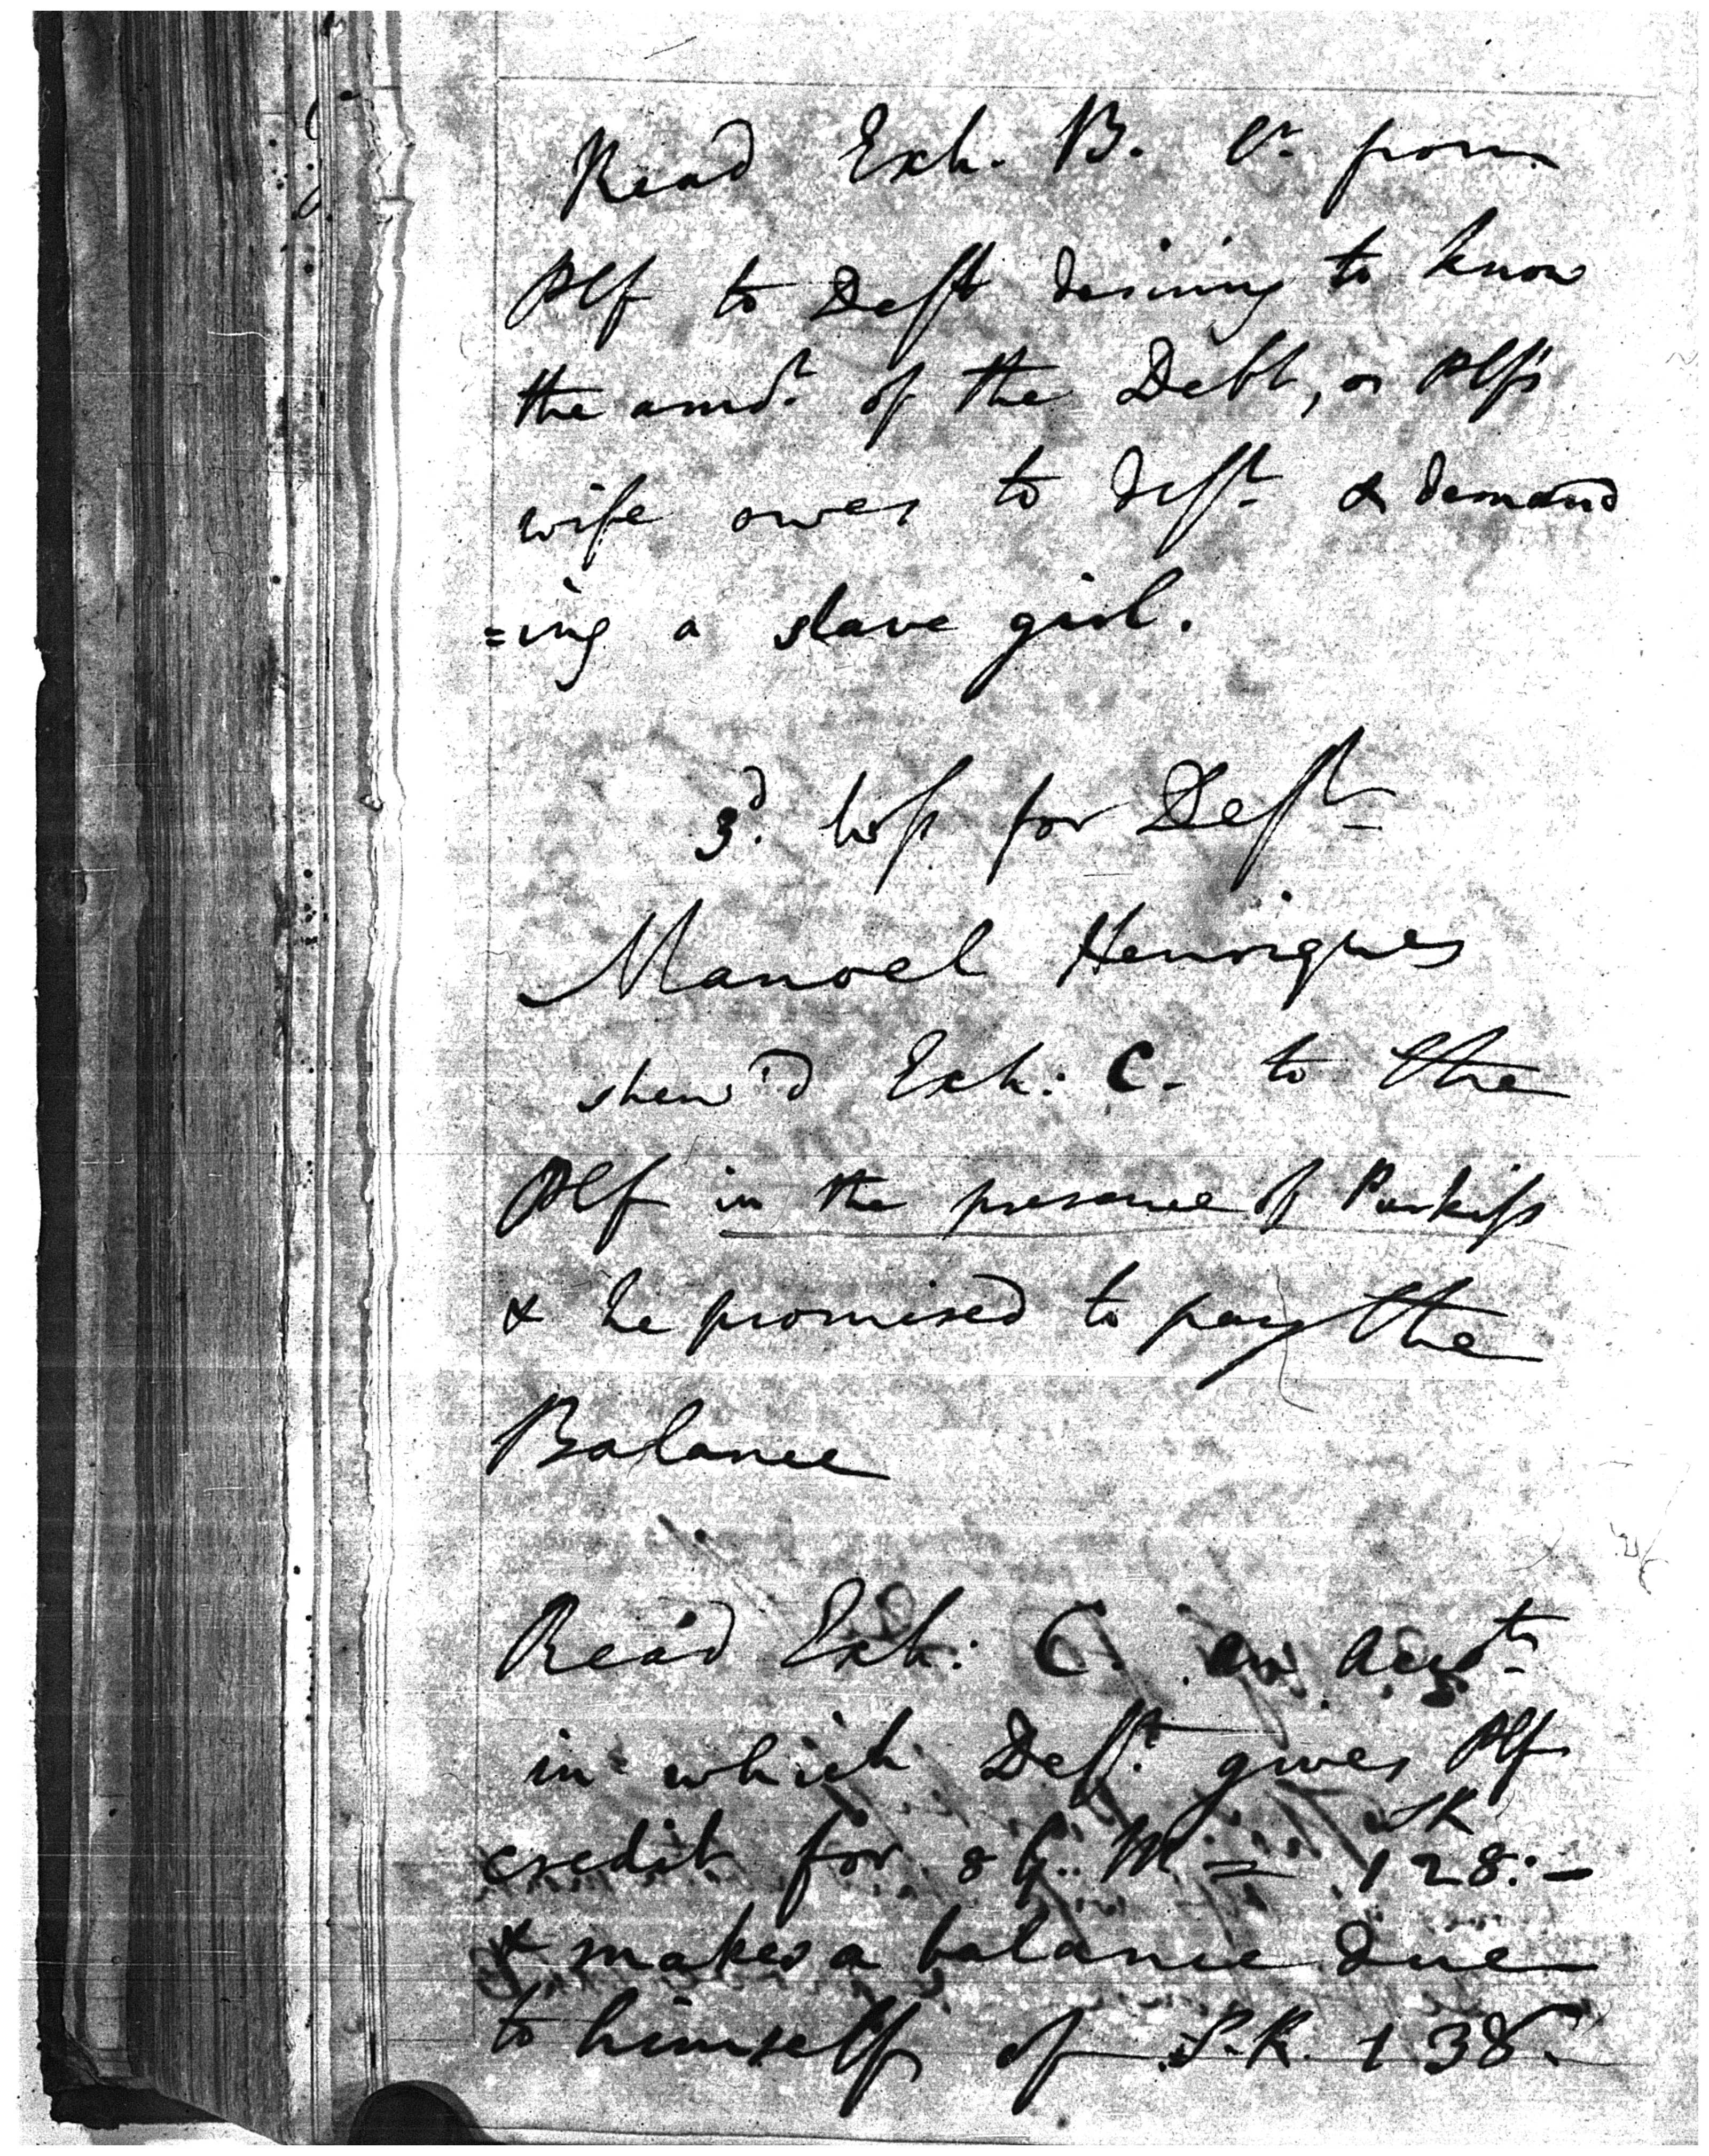 Read Exh. B. lr. from
Plf to Deft desiring to know
the amot. of the Debt, or Plf's
wife owes to deft. & demand
=ing a slave girl.
3d. wit for Deft
Manoel Henriques
shew'd Exh: C. to the
Plf in the presence of
& he promised to pay the
Balance
Read Exh: C. an Acct
in which Deft. gives Plf
credit for 8 G. M = SR 128:-
& makes a balance due
to himself of S.R. 138.